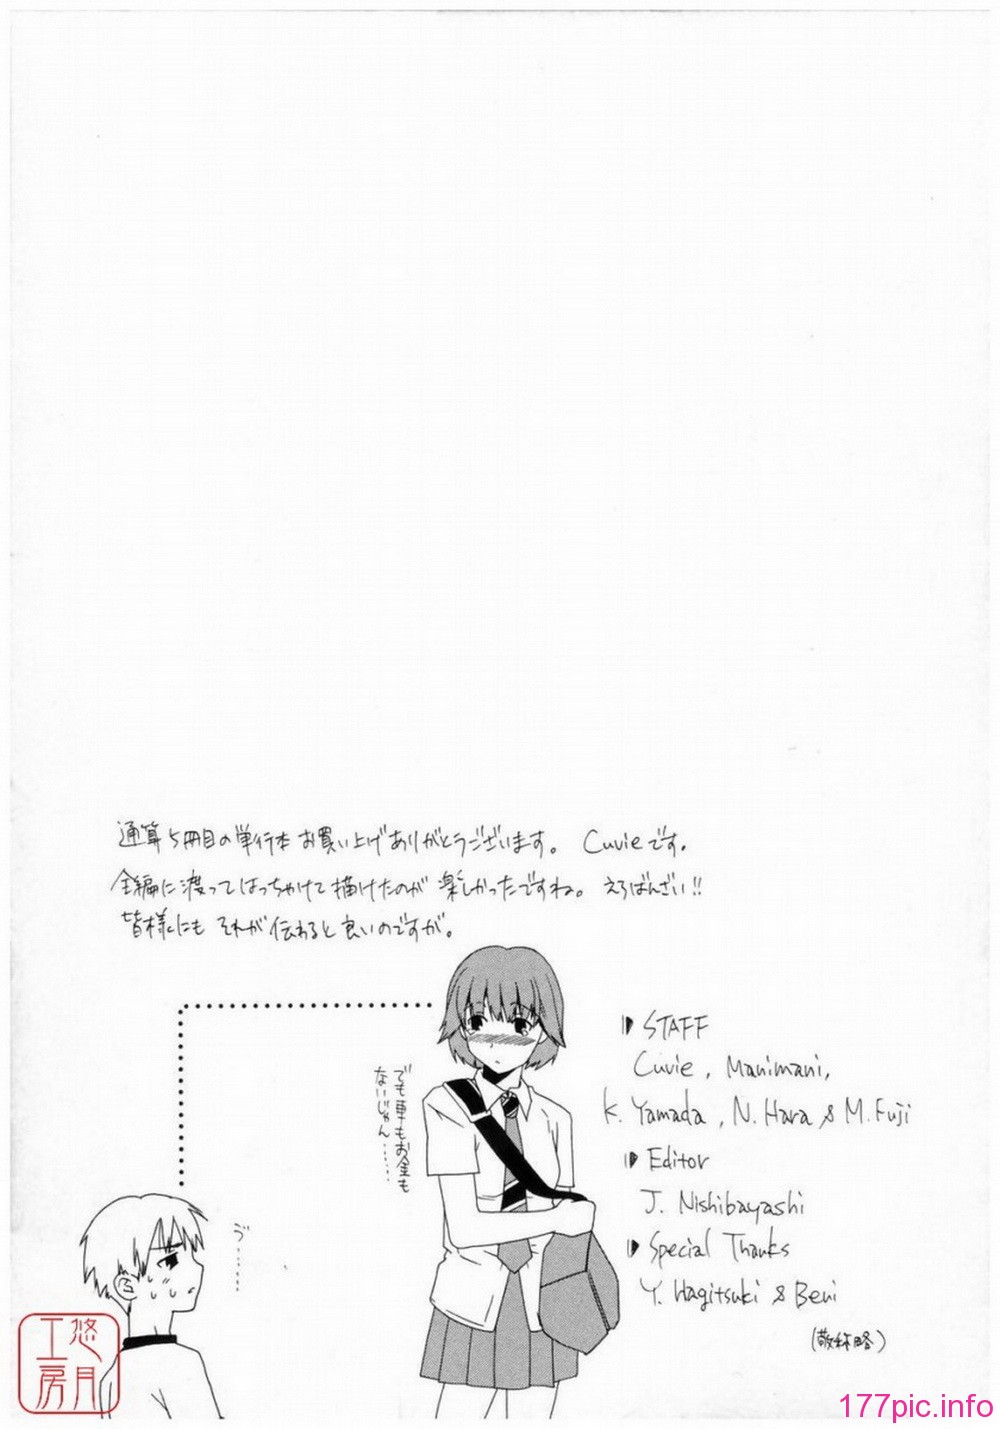 通算5冊目の単行本お買い上げありがとうございます。 Cuvieです。
全編に渡ってはっちゃけて描けたのが楽しかったですね。えろばんざい!!
皆様にもそれが伝わると良いのですが。
でも車もお金も
ないじゃん……
う"……
STAFF
Cuvie, Manimani,
K. Yamada, N. Hara & M. Fuji
Editor
J. Nishibayashi
Special Thanks
Y. Hagitsuki & Beni
(敬称略)
悠月
工房
177pic.info